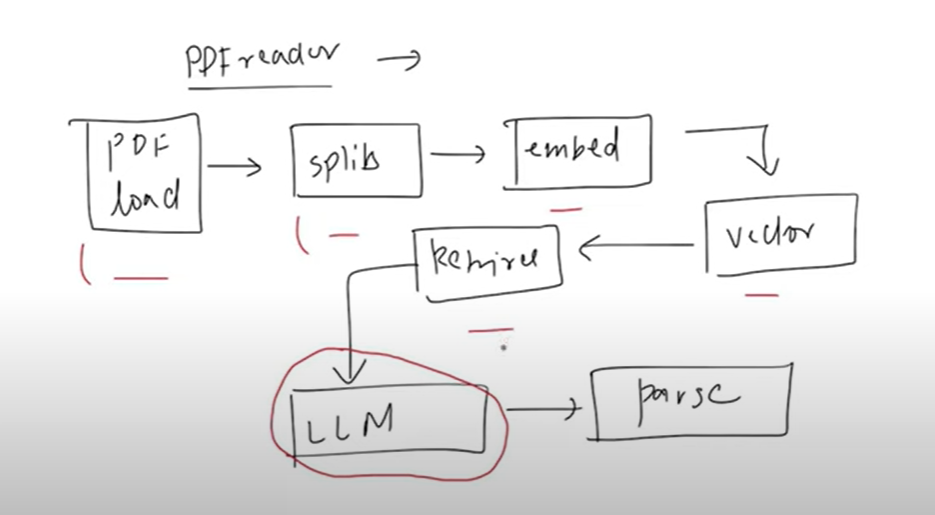 PDF reader →
PDF
load
split
embed
vector
Retrieve
LLM
parse